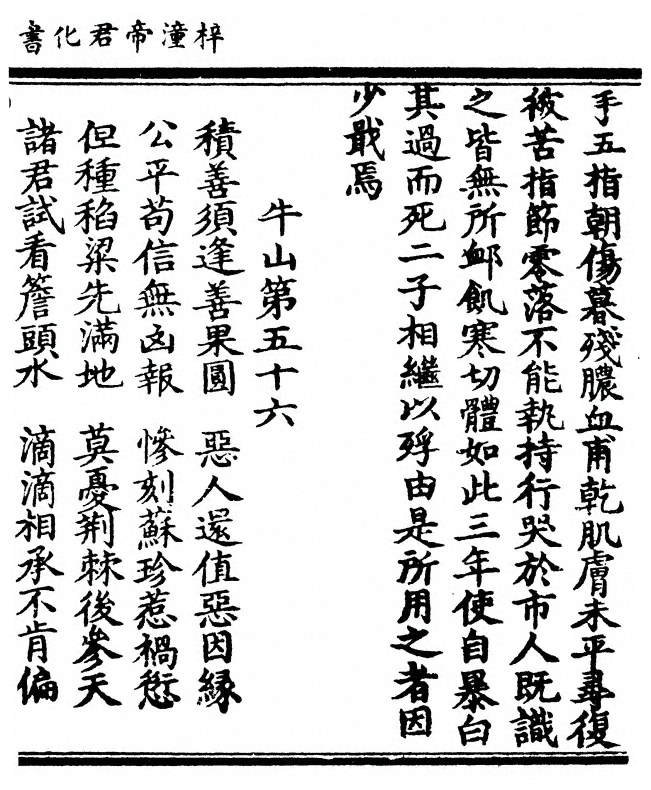 梓潼帝君化書
手五指朝傷暮殘膿血甫乾肌膚未平尋復
被苦指節零落不能執持行哭於市人既識
之皆無所䘏飢寒切體如此三年使自暴白
其過而死二子相繼以殍由是所用之者因
少戢焉
牛山第五十六
積善須逢善果圓 惡人還值惡因緣
公平苟信無凶報 慘刻蘇珍惹禍愆
但種稻粱先滿地 莫憂荆棘後參天
諸君試看簷頭水 滴滴相承不肯偏